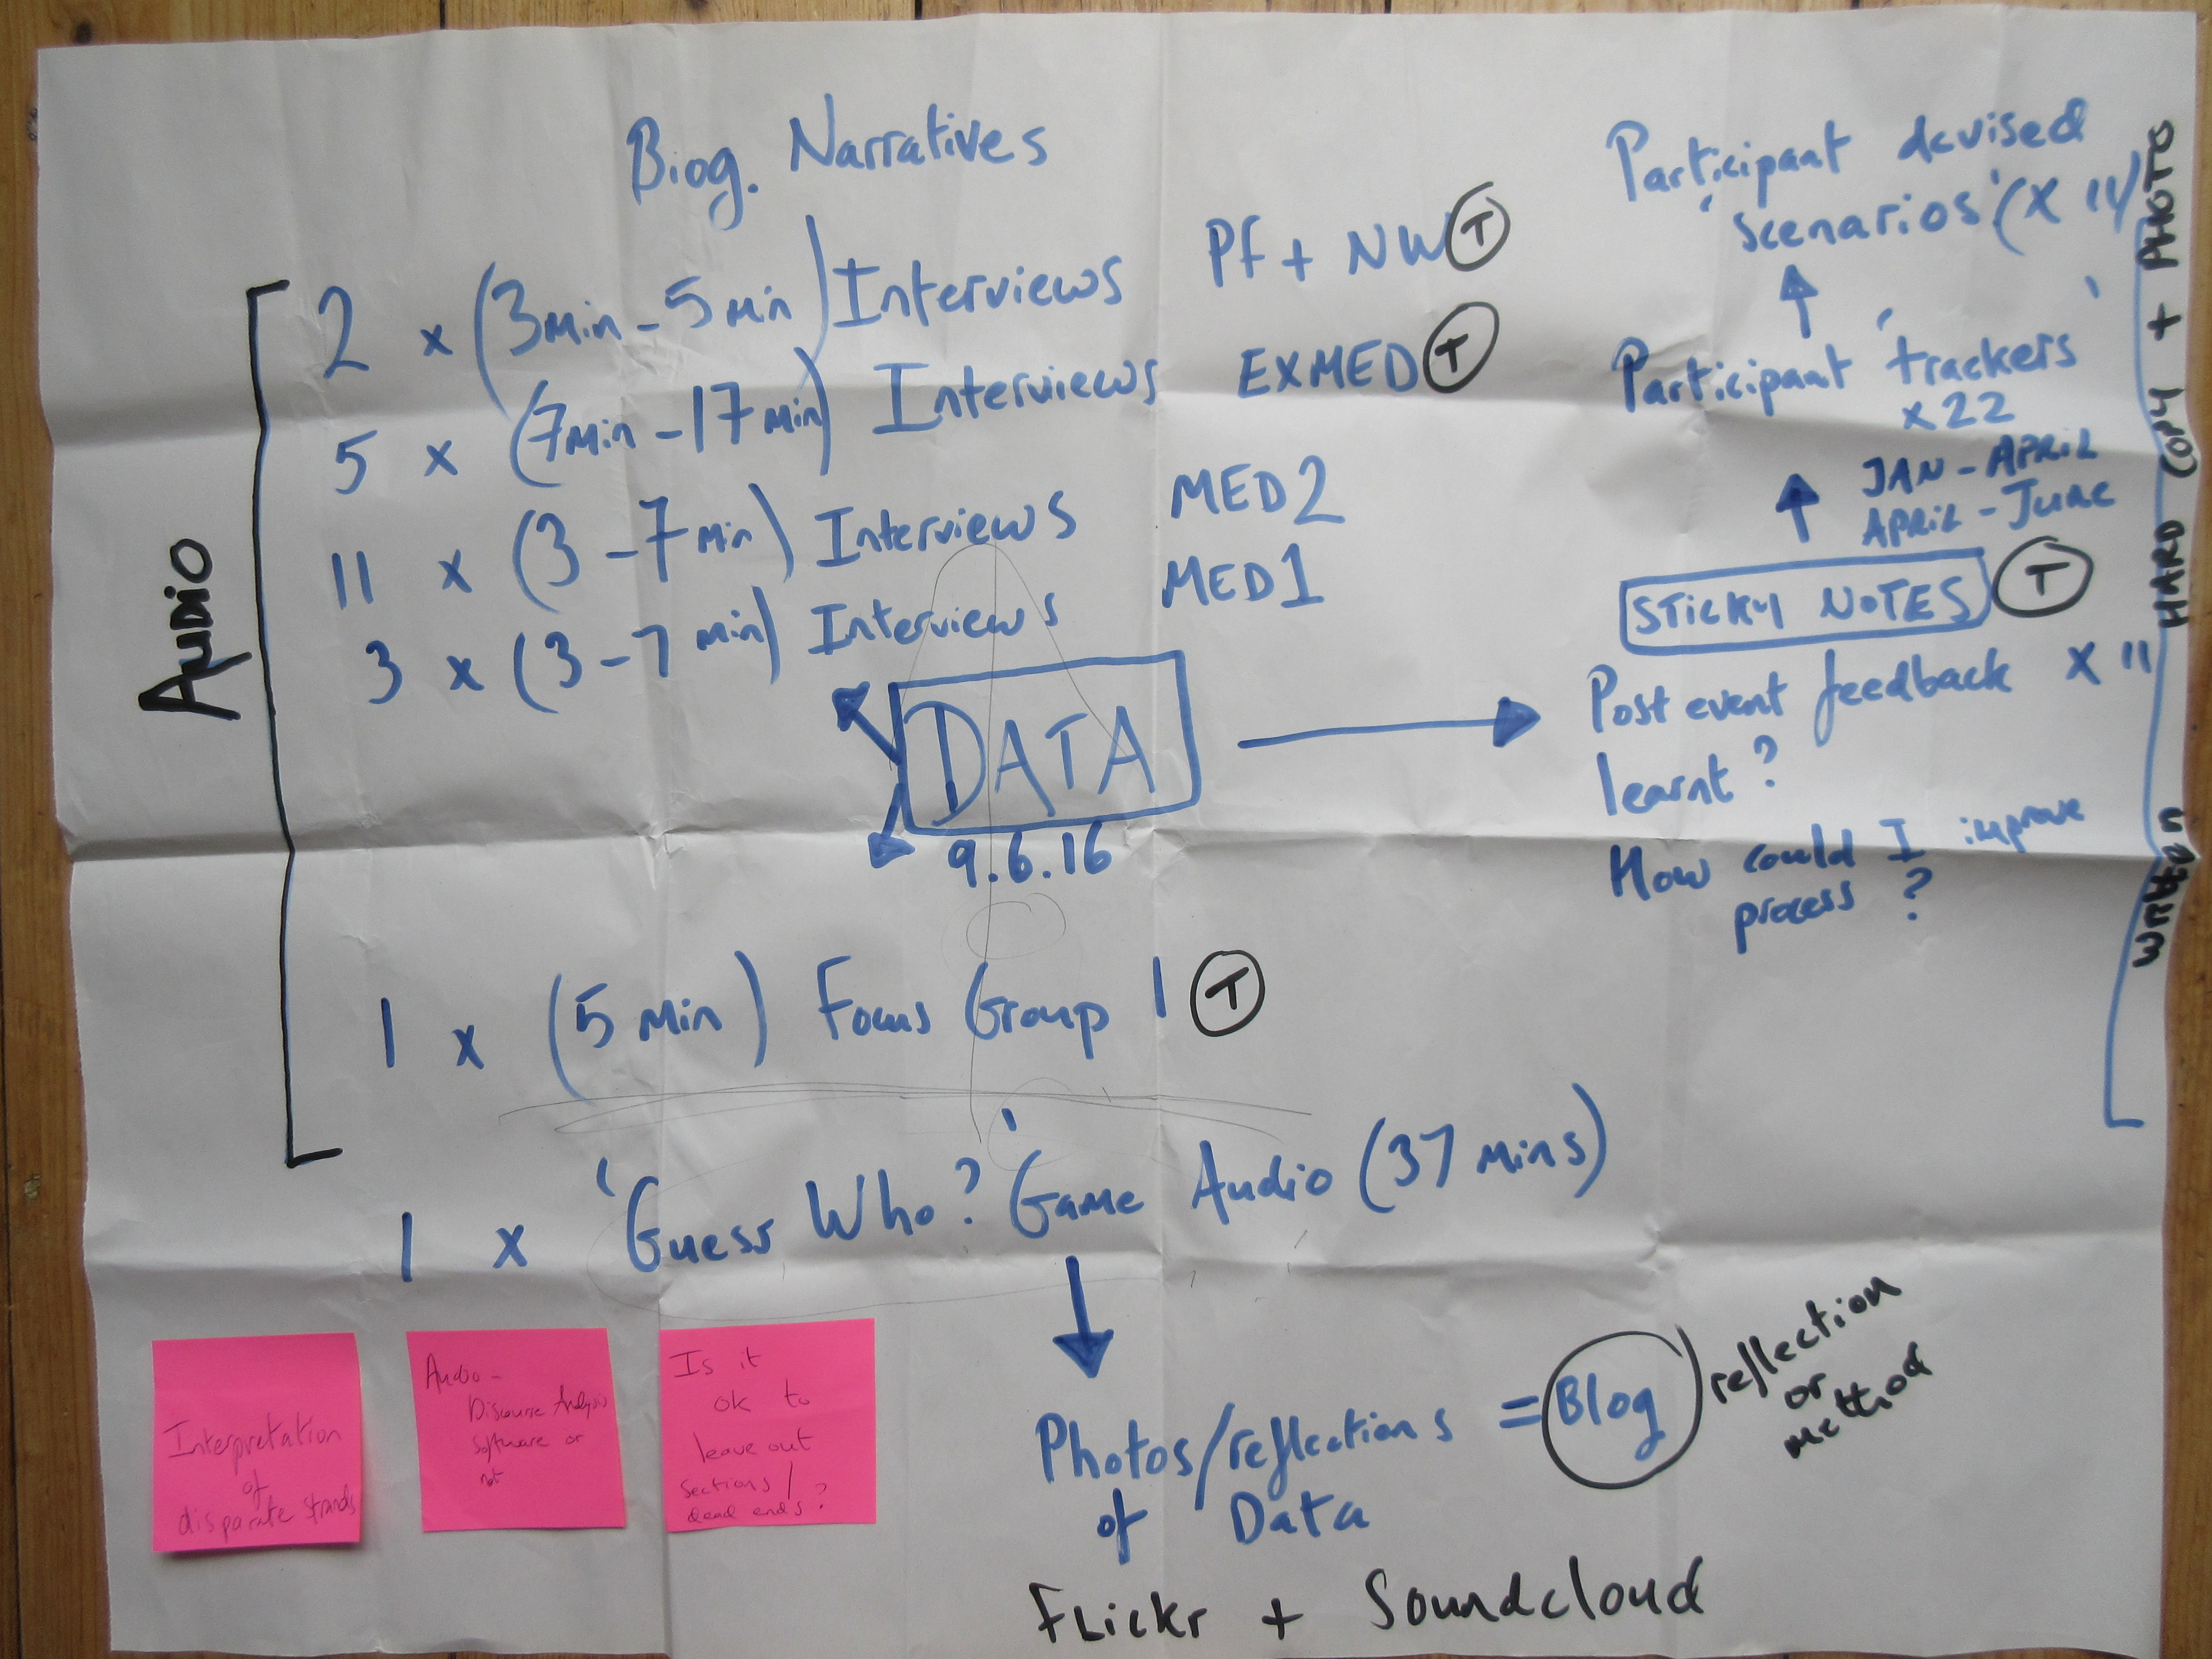 Biog. Narratives
AUDIO
2 x (3min - 5min) Interviews PF + NW T
5 x (7min - 17min) Interviews EXMED T
11 x (3 - 7min) Interviews MED 2
3 x (3 - 7min) Interviews MED 1
DATA
9.6.16
1 x (5 min) Focus Group 1 T
1 x 'Guess Who?' Game Audio (37 mins)
Photos/reflections = Blog
of Data
reflection
or
method
Flickr + Soundcloud
Participant devised
'scenarios' (x 11)
Participant 'trackers'
x 22
JAN - APRIL
APRIL - JUNE
STICKY NOTES T
Post event feedback x 11
learnt?
How could I improve
process?
WRITTEN HARD COPY + PHOTO
Interpretation
of
disparate strands
Audio -
Discourse Analysis
software or
not
Is it
ok to
leave out
sections/
dead ends?